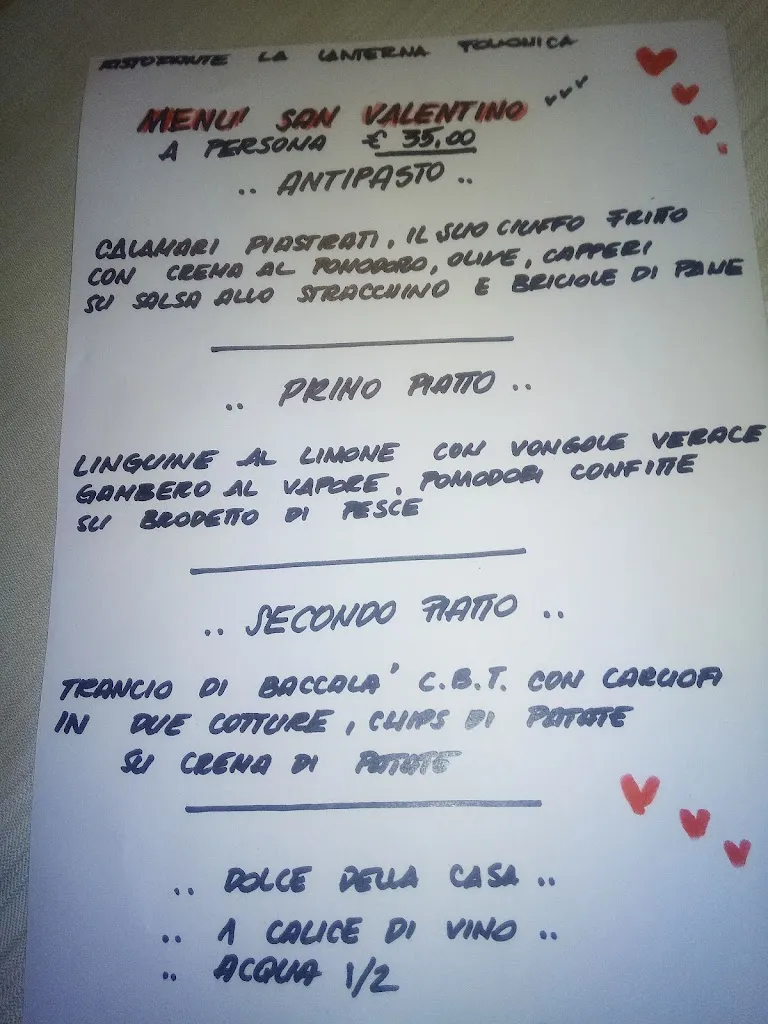 RISTORANTE LA LANTERNA FOLLONICA
MENU' SAN VALENTINO
A PERSONA € 35,00
.. ANTIPASTO ..
CALAMARI PIASTRATI, IL SUO CIUFFO FRITTO
CON CREMA AL POMODORO, OLIVE, CAPPERI
SU SALSA ALLO STRACCHINO E BRICIOLE DI PANE
.. PRIMO PIATTO ..
LINGUINE AL LIMONE CON VONGOLE VERACE
GAMBERO AL VAPORE, POMODORI CONFITTE
SU BRODETTO DI PESCE
.. SECONDO PIATTO ..
TRANCIO DI BACCALA' C.B.T. CON CARCIOFI
IN DUE COTTURE, CHIPS DI PATATE
SU CREMA DI PATATE
.. DOLCE DELLA CASA ..
.. 1 CALICE DI VINO ..
.. ACQUA 1/2